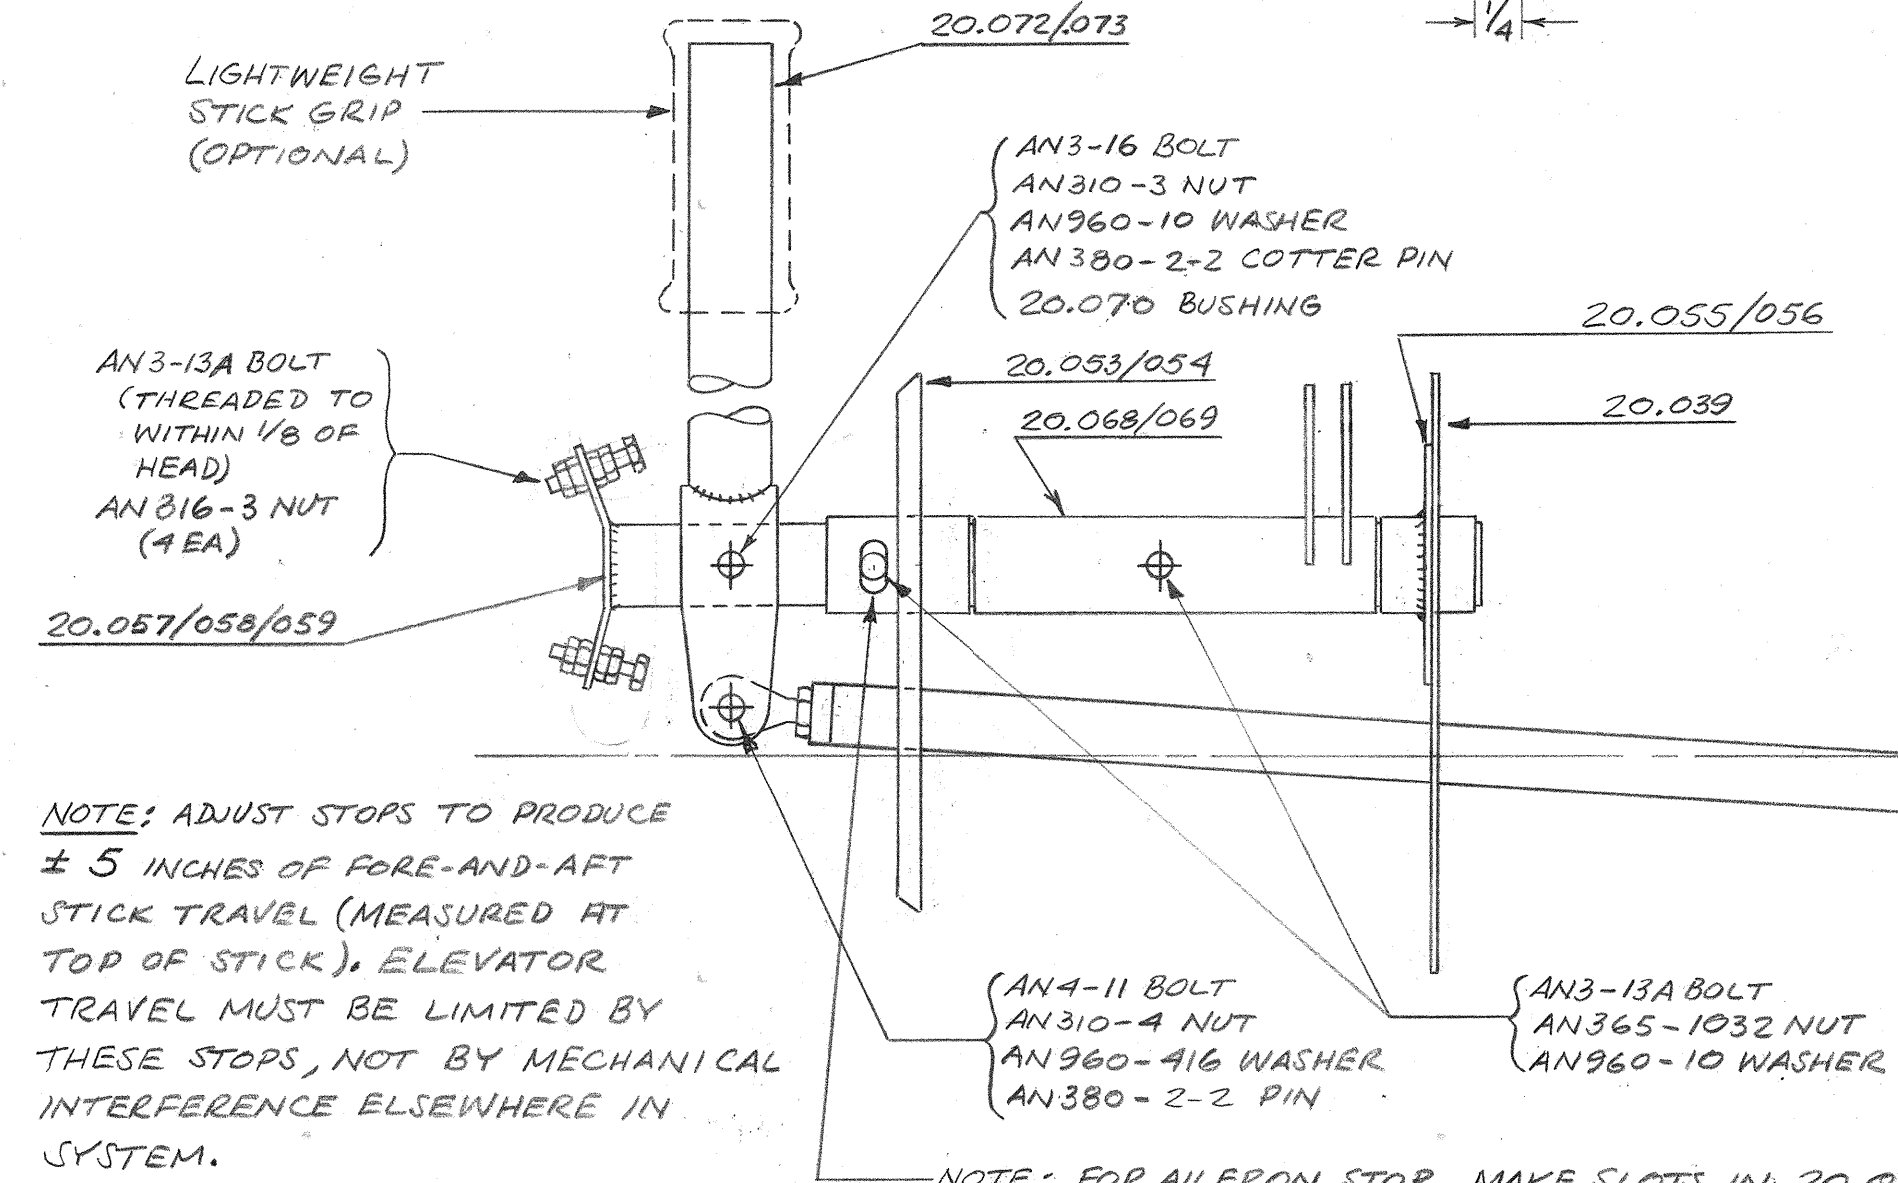 20.072/.073
1/4
LIGHTWEIGHT
STICK GRIP
(OPTIONAL)
AN3-16 BOLT
AN310-3 NUT
AN960-10 WASHER
AN380-2-2 COTTER PIN
20.070 BUSHING
20.055/056
20.053/054
20.068/069
20.039
AN3-13A BOLT
(THREADED TO
WITHIN 1/8 OF
HEAD)
AN316-3 NUT
(4 EA)
20.057/058/059
NOTE: ADJUST STOPS TO PRODUCE
± 5 INCHES OF FORE-AND-AFT
STICK TRAVEL (MEASURED AT
TOP OF STICK). ELEVATOR
TRAVEL MUST BE LIMITED BY
THESE STOPS, NOT BY MECHANICAL
INTERFERENCE ELSEWHERE IN
SYSTEM.
AN4-11 BOLT
AN310-4 NUT
AN960-416 WASHER
AN380-2-2 PIN
AN3-13A BOLT
AN365-1032 NUT
AN960-10 WASHER
NOTE: FOR AILERON STOP, MAKE SLOTS IN 20.